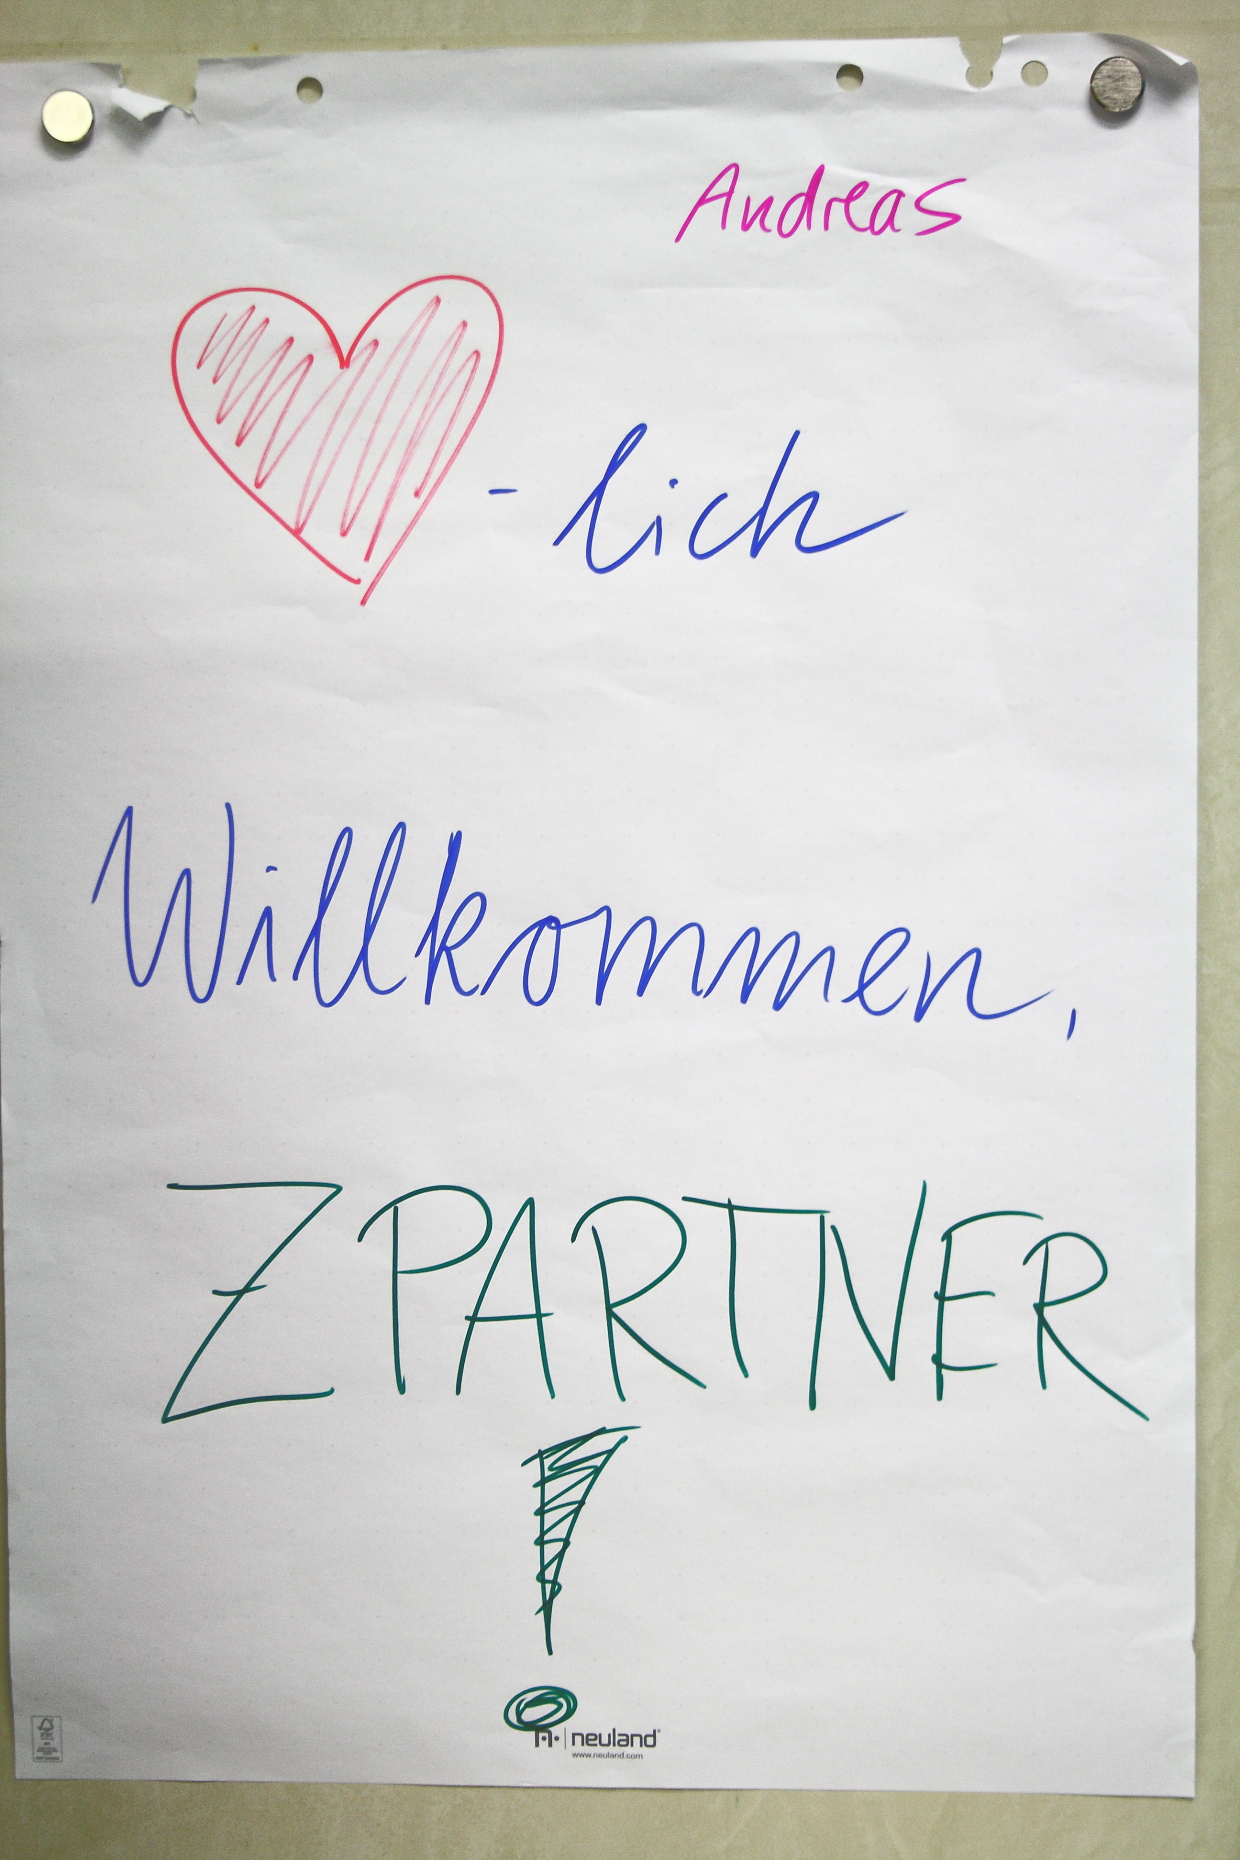 Andreas
-lich
Willkommen,
ZPARTNER
!
neuland
www.neuland.com